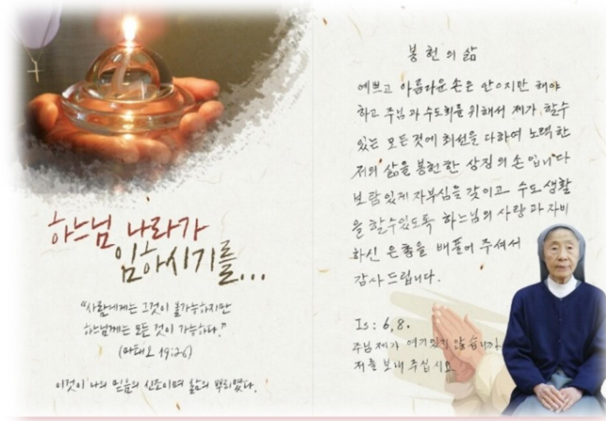 하느님 나라가
임하시기를...
"사람에게는 그것이 불가능하지만
하느님께는 모든 것이 가능하다."
(마태오 19:26)
이것이 나의 믿음의 신조이며 삶의 뿌리였다.
봉헌의 삶
예쁘고 아름다운 손은 안이지만 해야
하고 주님과 수도회를 위해서 제가 할수
있는 모든것에 최선을 다하여 노력한
저의 삶을 봉헌한 상징의 손입니다
보람있게 자부심을 갖이고 수도생활
을 할수있도록 하느님의 사랑과 자비
하신 은총을 베풀어 주셔서
감사드립니다.
Is: 6,8.
주님 제가 여기있지 않습니까
저를 보내 주십시요